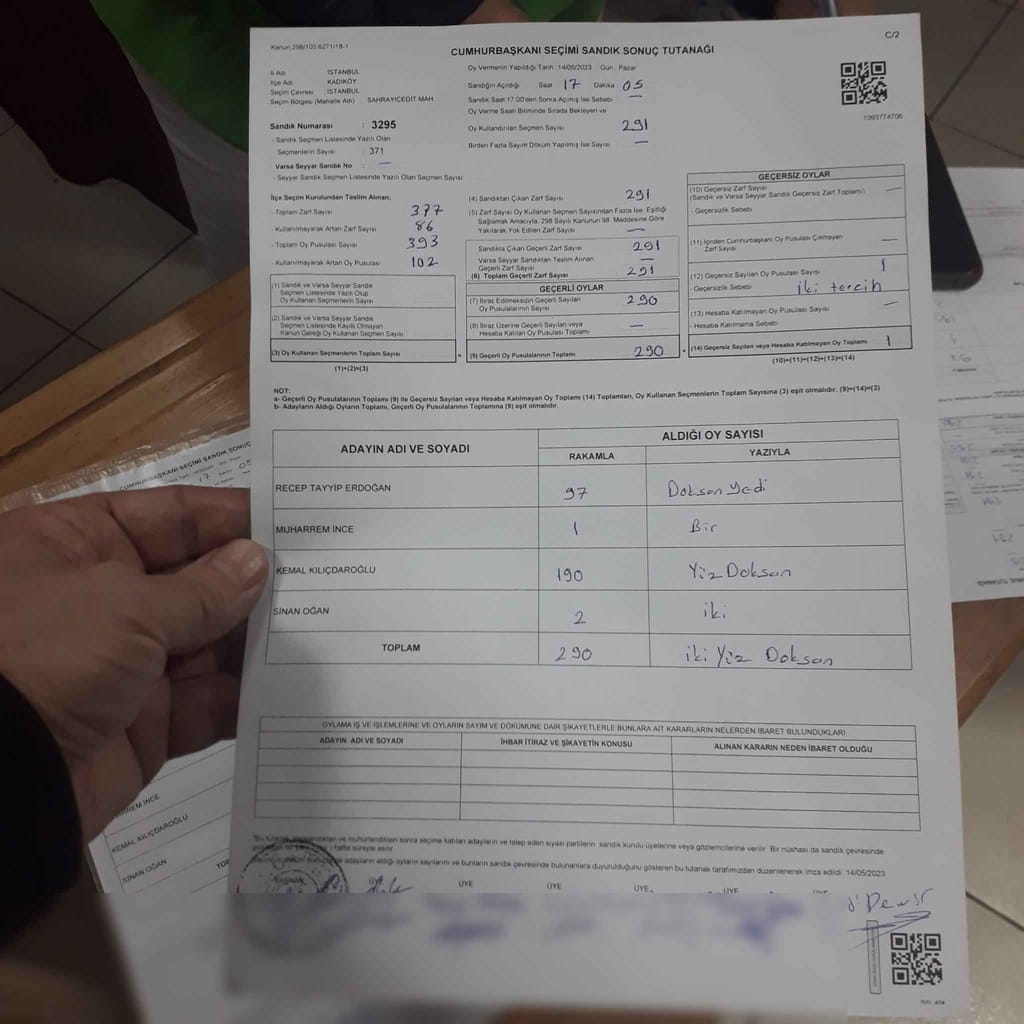 Kanun 298/105 6271/18-1
C/2
CUMHURBAŞKANI SEÇİMİ SANDIK SONUÇ TUTANAĞI
İl Adı : İSTANBUL
İlçe Adı : KADIKÖY
Seçim Çevresi : İSTANBUL
Seçim Bölgesi (Mahalle Adı) SAHRAYICEDİT MAH.
Sandık Numarası : 3295
- Sandık Seçmen Listesinde Yazılı Olan
Seçmenlerin Sayısı : 371
Varsa Seyyar Sandık No : —
- Seyyar Sandık Seçmen Listesinde Yazılı Olan Seçmen Sayısı
Oy Vermenin Yapıldığı Tarih :14/05/2023 Gün : Pazar
Sandığın Açıldığı Saat 17 Dakika 05
Sandık Saat 17:00'den Sonra Açılmış İse Sebebi —
Oy Verme Saati Bitiminde Sırada Bekleyen ve
Oy Kullandırılan Seçmen Sayısı 291
Birden Fazla Sayım Döküm Yapılmış İse Sayısı —
1093774706
İlçe Seçim Kurulundan Teslim Alınan;
- Toplam Zarf Sayısı 377
- Kullanılmayarak Artan Zarf Sayısı 86
- Toplam Oy Pusulası Sayısı 393
- Kullanılmayarak Artan Oy Pusulası 102
(1) Sandık ve Varsa Seyyar Sandık
Seçmen Listesinde Yazılı Olup
Oy Kullanan Seçmenlerin Sayısı
(2) Sandık ve Varsa Seyyar Sandık
Seçmen Listesinde Kaydı Olmayan
Kanun Gereği Oy Kullanan Seçmen Sayısı
(3) Oy Kullanan Seçmenlerin Toplam Sayısı
(1)+(2)=(3)
=
(4) Sandıktan Çıkan Zarf Sayısı 291
(5) Zarf Sayısı Oy Kullanan Seçmen Sayısından Fazla İse, Eşitliği
Sağlamak Amacıyla, 298 Sayılı Kanunun 98. Maddesine Göre
Yakılarak Yok Edilen Zarf Sayısı —
Sandıkta Çıkan Geçerli Zarf Sayısı 291
Varsa Seyyar Sandıktan Teslim Alınan
Geçerli Zarf Sayısı —
(6) Toplam Geçerli Zarf Sayısı 291
GEÇERLİ OYLAR
(7) İtiraz Edilmeksizin Geçerli Sayılan
Oy Pusulalarının Sayısı 290
(8) İtiraz Üzerine Geçerli Sayılan veya
Hesaba Katılan Oy Pusulası Toplamı —
(9) Geçerli Oy Pusulalarının Toplamı 290
+
GEÇERSİZ OYLAR
(10) Geçersiz Zarf Sayısı —
(Sandık ve Varsa Seyyar Sandık Geçersiz Zarf Toplamı)
- Geçersizlik Sebebi
(11) İçinden Cumhurbaşkanı Oy Pusulası Çıkmayan
Zarf Sayısı —
(12) Geçersiz Sayılan Oy Pusulası Sayısı 1
- Geçersizlik Sebebi iki tercih
(13) Hesaba Katılmayan Oy Pusulası Sayısı —
- Hesaba Katılmama Sebebi
(14) Geçersiz Sayılan veya Hesaba Katılmayan Oy Toplamı 1
(10)+(11)+(12)+(13)=(14)
NOT:
a- Geçerli Oy Pusulalarının Toplamı (9) ile Geçersiz Sayılan veya Hesaba Katılmayan Oy Toplamı (14) Toplamları, Oy Kullanan Seçmenlerin Toplam Sayısına (3) eşit olmalıdır. (9)+(14)=(3)
b- Adayların Aldığı Oyların Toplamı, Geçerli Oy Pusulalarının Toplamına (9) eşit olmalıdır.
ADAYIN ADI VE SOYADI
ALDIĞI OY SAYISI
RAKAMLA YAZIYLA
RECEP TAYYİP ERDOĞAN 97 Doksan yedi
MUHARREM İNCE 1 Bir
KEMAL KILIÇDAROĞLU 190 Yüz Doksan
SİNAN OĞAN 2 iki
TOPLAM 290 iki Yüz Doksan
OYLAMA İŞ VE İŞLEMLERİNE VE OYLARIN SAYIM VE DÖKÜMÜNE DAİR ŞİKAYETLERLE BUNLARA AİT KARARLARIN NELERDEN İBARET BULUNDUKLARI
ADAYIN ADI VE SOYADI İHBAR İTİRAZ VE ŞİKAYETİN KONUSU ALINAN KARARIN NEDEN İBARET OLDUĞU
ve mühürlendikten sonra seçime katılan adayların ve talep eden siyasi partilerin sandık kurulu üyelerine veya gözlemcilerine verilir. Bir nüshası da sandık çevresinde
hafta süreyle asılır.
adayların aldığı oyların sayılarını ve bunların sandık çevresinde bulunanlara duyurulduğunu gösteren bu tutanak tarafımızdan düzenlenerek imza edildi. 14/05/2023
BAŞKAN ÜYE ÜYE ÜYE ÜYE ÜYE ÜYE
CUMHURBAŞKANI SEÇİMİ SANDIK SONUÇ
17 05
MUHARREM İNCE
KEMAL KILIÇDAROĞLU
SİNAN OĞAN